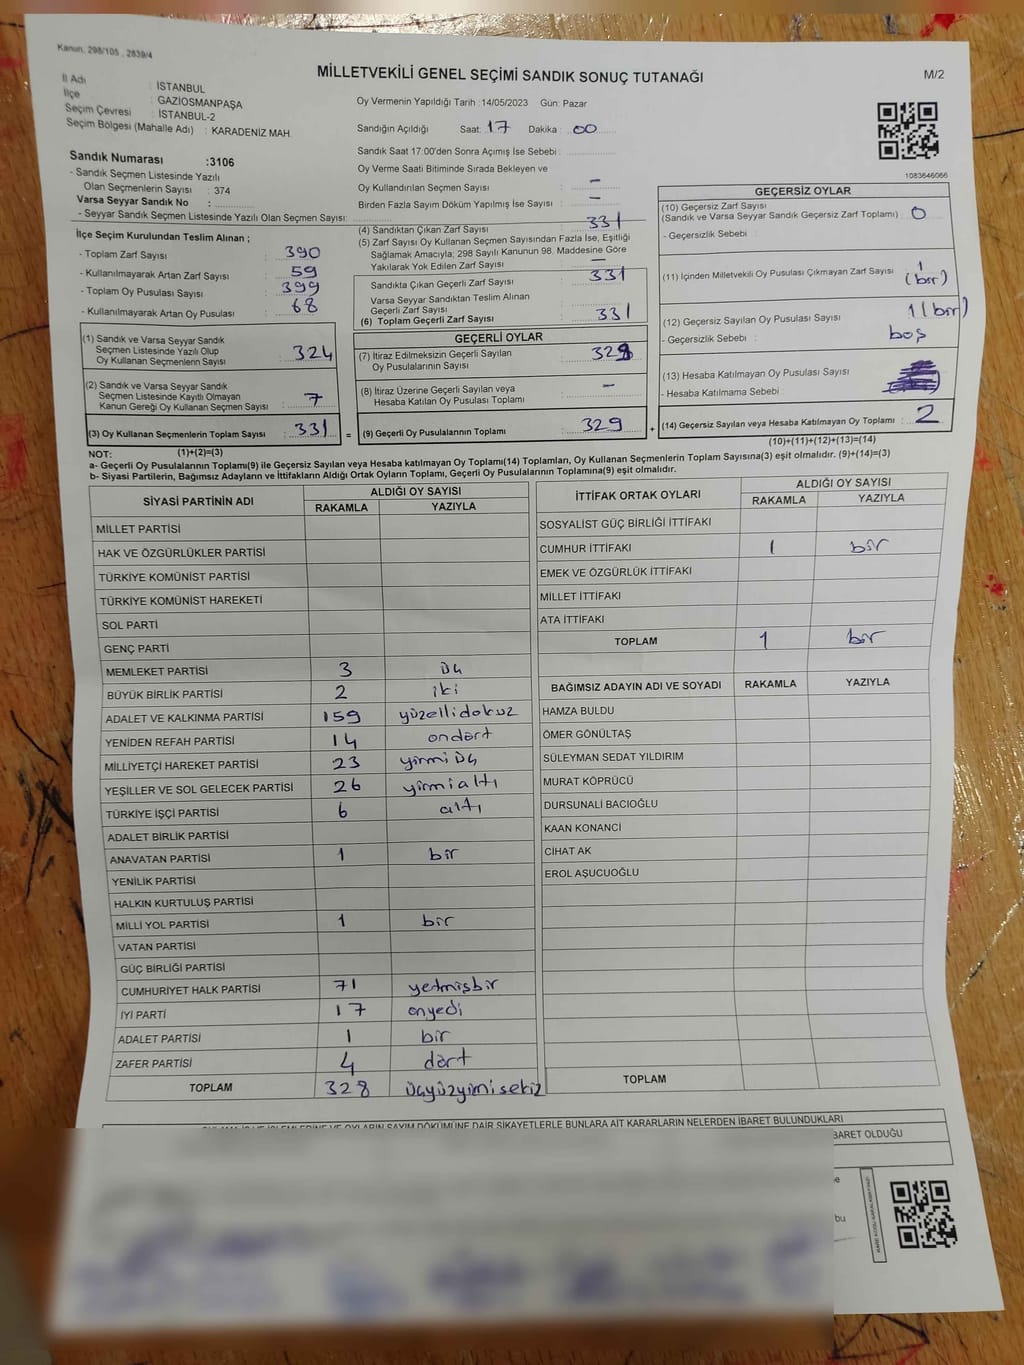 Kanun, 298/105 , 2839/4
MİLLETVEKİLİ GENEL SEÇİMİ SANDIK SONUÇ TUTANAĞI
M/2
İl Adı : İSTANBUL
İlçe : GAZİOSMANPAŞA
Seçim Çevresi : İSTANBUL-2
Seçim Bölgesi (Mahalle Adı) : KARADENİZ MAH.
Sandık Numarası :3106
- Sandık Seçmen Listesinde Yazılı
Olan Seçmenlerin Sayısı : 374
Varsa Seyyar Sandık No :
- Seyyar Sandık Seçmen Listesinde Yazılı Olan Seçmen Sayısı:
Oy Vermenin Yapıldığı Tarih :14/05/2023 Gün: Pazar
Sandığın Açıldığı Saat: 17 Dakika : 00
Sandık Saat 17:00'den Sonra Açımış İse Sebebi :
Oy Verme Saati Bitiminde Sırada Bekleyen ve
Oy Kullandırılan Seçmen Sayısı : –
Birden Fazla Sayım Döküm Yapılmış İse Sayısı : –
1083646066
İlçe Seçim Kurulundan Teslim Alınan ;
- Toplam Zarf Sayısı : 390
- Kullanılmayarak Artan Zarf Sayısı : 59
- Toplam Oy Pusulası Sayısı : 399
- Kullanılmayarak Artan Oy Pusulası : 68
(1) Sandık ve Varsa Seyyar Sandık
Seçmen Listesinde Yazılı Olup
Oy Kullanan Seçmenlerin Sayısı : 324
(2) Sandık ve Varsa Seyyar Sandık
Seçmen Listesinde Kayıtlı Olmayan
Kanun Gereği Oy Kullanan Seçmen Sayısı : 7
(3) Oy Kullanan Seçmenlerin Toplam Sayısı : 331
(1)+(2)=(3)
(4) Sandıktan Çıkan Zarf Sayısı : 331
(5) Zarf Sayısı Oy Kullanan Seçmen Sayısından Fazla İse, Eşitliği
Sağlamak Amacıyla; 298 Sayılı Kanunun 98. Maddesine Göre
Yakılarak Yok Edilen Zarf Sayısı : –
Sandıkta Çıkan Geçerli Zarf Sayısı : 331
Varsa Seyyar Sandıktan Teslim Alınan
Geçerli Zarf Sayısı :
(6) Toplam Geçerli Zarf Sayısı : 331
GEÇERLİ OYLAR
(7) İtiraz Edilmeksizin Geçerli Sayılan
Oy Pusulalarının Sayısı : 329
(8) İtiraz Üzerine Geçerli Sayılan veya
Hesaba Katılan Oy Pusulası Toplamı : –
= (9) Geçerli Oy Pusulalarının Toplamı : 329
GEÇERSİZ OYLAR
(10) Geçersiz Zarf Sayısı
(Sandık ve Varsa Seyyar Sandık Geçersiz Zarf Toplamı) : 0
- Geçersizlik Sebebi :
(11) İçinden Milletvekili Oy Pusulası Çıkmayan Zarf Sayısı : 1
(bir)
(12) Geçersiz Sayılan Oy Pusulası Sayısı : 1 (bir)
- Geçersizlik Sebebi : boş
(13) Hesaba Katılmayan Oy Pusulası Sayısı
- Hesaba Katılmama Sebebi :
+ (14) Geçersiz Sayılan veya Hesaba Katılmayan Oy Toplamı : 2
(10)+(11)+(12)+(13)=(14)
NOT:
a- Geçerli Oy Pusulalarının Toplamı(9) ile Geçersiz Sayılan veya Hesaba katılmayan Oy Toplamı(14) Toplamları, Oy Kullanan Seçmenlerin Toplam Sayısına(3) eşit olmalıdır. (9)+(14)=(3)
b- Siyasi Partilerin, Bağımsız Adayların ve İttifakların Aldığı Ortak Oyların Toplamı, Geçerli Oy Pusulalarının Toplamına(9) eşit olmalıdır.
SİYASİ PARTİNİN ADI ALDIĞI OY SAYISI
RAKAMLA YAZIYLA
MİLLET PARTİSİ
HAK VE ÖZGÜRLÜKLER PARTİSİ
TÜRKİYE KOMÜNİST PARTİSİ
TÜRKİYE KOMÜNİST HAREKETİ
SOL PARTİ
GENÇ PARTİ
MEMLEKET PARTİSİ 3 üç
BÜYÜK BİRLİK PARTİSİ 2 iki
ADALET VE KALKINMA PARTİSİ 159 yüzellidokuz
YENİDEN REFAH PARTİSİ 14 ondört
MİLLİYETÇİ HAREKET PARTİSİ 23 yirmi üç
YEŞİLLER VE SOL GELECEK PARTİSİ 26 yirmialtı
TÜRKİYE İŞÇİ PARTİSİ 6 altı
ADALET BİRLİK PARTİSİ
ANAVATAN PARTİSİ 1 bir
YENİLİK PARTİSİ
HALKIN KURTULUŞ PARTİSİ
MİLLİ YOL PARTİSİ 1 bir
VATAN PARTİSİ
GÜÇ BİRLİĞİ PARTİSİ
CUMHURİYET HALK PARTİSİ 71 yetmişbir
İYİ PARTİ 17 onyedi
ADALET PARTİSİ 1 bir
ZAFER PARTİSİ 4 dört
TOPLAM 328 üçyüzyimisekiz
İTTİFAK ORTAK OYLARI ALDIĞI OY SAYISI
RAKAMLA YAZIYLA
SOSYALİST GÜÇ BİRLİĞİ İTTİFAKI
CUMHUR İTTİFAKI 1 bir
EMEK VE ÖZGÜRLÜK İTTİFAKI
MİLLET İTTİFAKI
ATA İTTİFAKI
TOPLAM 1 bir
BAĞIMSIZ ADAYIN ADI VE SOYADI RAKAMLA YAZIYLA
HAMZA BULDU
ÖMER GÖNÜLTAŞ
SÜLEYMAN SEDAT YILDIRIM
MURAT KÖPRÜCÜ
DURSUNALİ BACIOĞLU
KAAN KONANCİ
CİHAT AK
EROL AŞUCUOĞLU
TOPLAM
OYLARIN SAYIM DÖKÜMÜNE DAİR ŞİKAYETLERLE BUNLARA AİT KARARLARIN NELERDEN İBARET BULUNDUKLARI
BARET OLDUĞU
bu